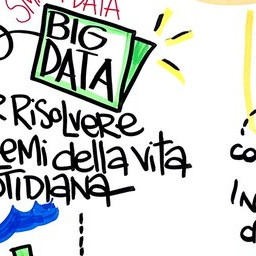 SMART DATA
BIG
DATA
R RISOLVERE
EMI della VITA
OTIDIANA
co
IN
d